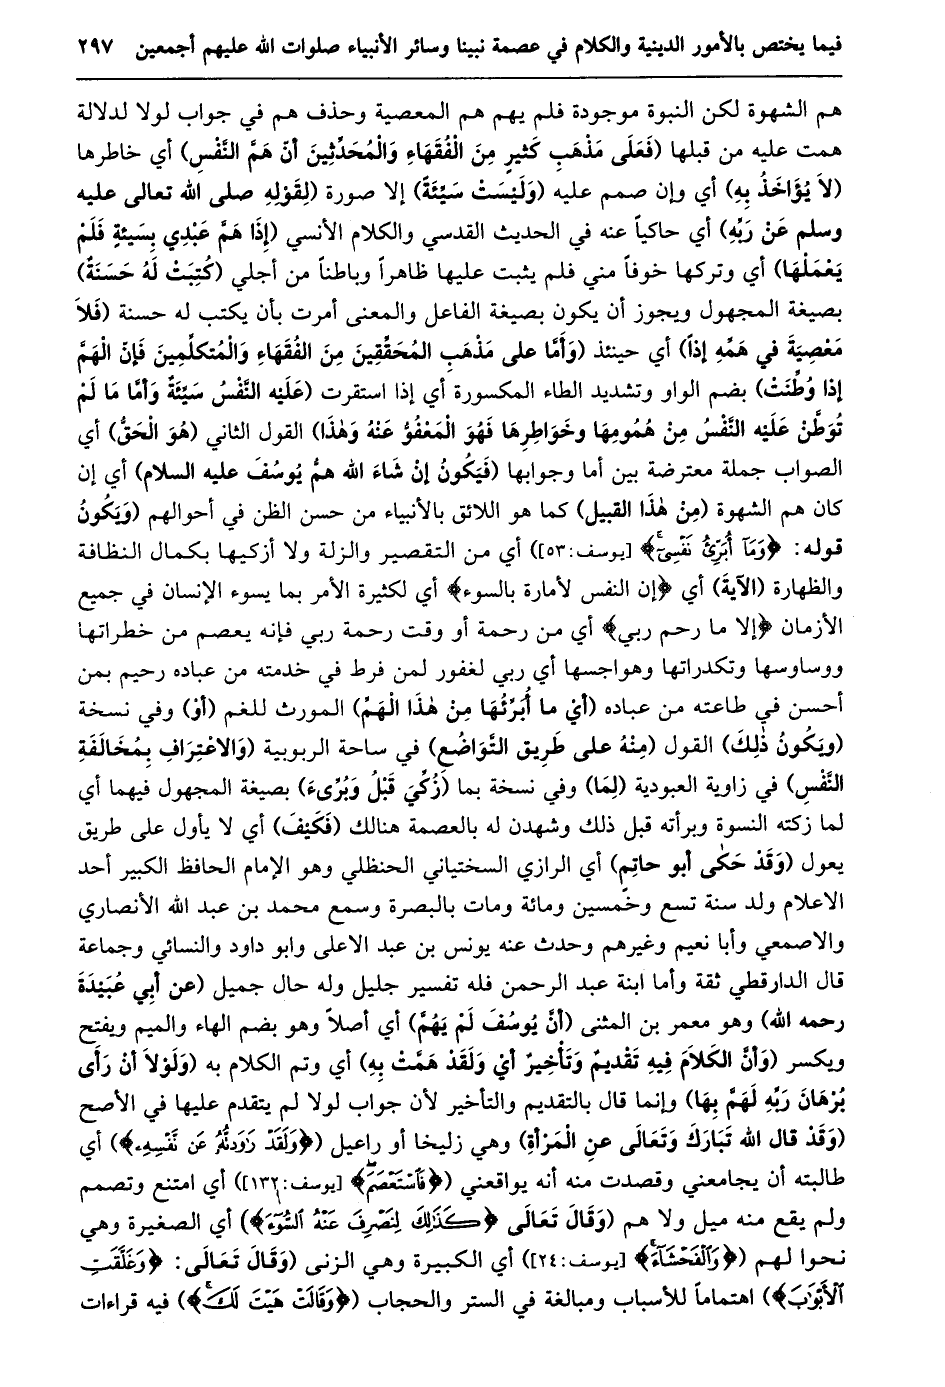 فيما يختص بالأمور الدينية والكلام في عصمة نبينا وسائر الأنبياء صلوات الله عليهم أجمعين ٢٩٧
هم الشهوة لكن النبوة موجودة فلم يهم هم المعصية وحذف هم في جواب لولا لدلالة
همت عليه من قبلها (فَعَلَى مَذْهَبِ كَثيرٍ مِنَ الْفُقَهَاءِ وَالْمُحَدِّثِينَ أنَّ هَمَّ النَّفْسِ) أي خاطرها
(لاَ يُؤَاخَذُ بِهِ) أي وإن صمم عليه (وَلَيْسَتْ سَيِّئَةً) إلا صورة (لِقَوْلِهِ صلى الله تعالى عليه
وسلم عَنْ رَبِّهِ) أي حاكياً عنه في الحديث القدسي والكلام الأنسي (إذَا هَمَّ عَبْدِي بِسَيئةٍ فَلَمْ
يَعْمَلْهَا) أي وتركها خوفاً مني فلم يثبت عليها ظاهراً وباطناً من أجلي (كُتِبَتْ لَهُ حَسَنَةً)
بصيغة المجهول ويجوز أن يكون بصيغة الفاعل والمعنى أمرت بأن يكتب له حسنة (فَلاَ
مَعْصِيَةَ في هَمِّهِ إذاً) أي حينئذ (وَأمَّا على مَذْهَبِ المُحَقِّقِينَ مِنَ الْفُقَهَاءِ وَالْمُتكلِّمِينَ فَإنَّ الْهَمَّ
إذا وُطِّنَتْ) بضم الواو وتشديد الطاء المكسورة أي إذا استقرت (عَلَيْهِ النَّفْسُ سَيِّئَةٌ وَأمَّا مَا لَمْ
تُوَطَّنْ عَلَيْهِ النَّفْسُ مِنْ هُمُومِهَا وخَوَاطِرِهَا فَهُوَ الْمَعْفُوُّ عَنْهُ وَهٰذا) القول الثاني (هُوَ الْحَقُّ) أي
الصواب جملة معترضة بين أما وجوابها (فَيَكُونُ إنْ شَاءَ الله همُّ يُوسُفَ عليه السلام) أي إن
كان هم الشهوة (مِنْ هٰذَا القبيل) كما هو اللائق بالأنبياء من حسن الظن في أحوالهم (وَيَكُونُ
قوله: ﴿وَمَآ أُبَرِّئُ نَفْسِيٓ﴾ [يوسف: ٥٣]) أي من التقصير والزلة ولا أزكيها بكمال النظافة
والظهارة (الآيَةَ) أي ﴿إن النفس لأمارة بالسوء﴾ أي لكثيرة الأمر بما يسوء الإنسان في جميع
الأزمان ﴿إلا ما رحم ربي﴾ أي من رحمة أو وقت رحمة ربي فإنه يعصم من خطراتها
ووساوسها وتكدراتها وهواجسها أي ربي لغفور لمن فرط في خدمته من عباده رحيم بمن
أحسن في طاعته من عباده (أيْ ما أُبَرِّئُها مِنْ هٰذَا الْهَمِّ) المورث للغم (أوْ) وفي نسخة
(ويَكُونُ ذٰلِكَ) القول (مِنْهُ على طَرِيقِ التَّوَاضُعِ) في ساحة الربوبية (وَالاعْتِرَافِ بِمُخَالَفَةِ
النَّفْسِ) في زاوية العبودية (لِمَا) وفي نسخة بما (زُكِّيَ قَبْلُ وَبُرِّىءَ) بصيغة المجهول فيهما أي
لما زكته النسوة وبرأته قبل ذلك وشهدن له بالعصمة هنالك (فَكَيْفَ) أي لا يأول على طريق
يعول (وَقَدْ حَكٰى أبو حاتِمٍ) أي الرازي السختياني الحنظلي وهو الإمام الحافظ الكبير أحد
الاعلام ولد سنة تسع وخمسين ومائة ومات بالبصرة وسمع محمد بن عبد الله الأنصاري
والاصمعي وأبا نعيم وغيرهم وحدث عنه يونس بن عبد الاعلى وابو داود والنسائي وجماعة
قال الدارقطي ثقة وأما ابنة عبد الرحمن فله تفسير جليل وله حال جميل (عن أبِي عُبَيْدَةَ
رحمه الله) وهو معمر بن المثنى (أنَّ يُوسُفَ لَمْ يَهُمَّ) أي أصلاً وهو بضم الهاء والميم ويفتح
ويكسر (وَأنَّ الكَلاَمَ فِيهِ تَقْدِيمٌ وَتَأْخِيرٌ أيْ وَلَقَدْ هَمَّتْ بِهِ) أي وتم الكلام به (وَلَوْلاَ أنْ رَأى
بُرْهَانَ رَبِّهِ لَهَمَّ بِهَا) وإنما قال بالتقديم والتأخير لأن جواب لولا لم يتقدم عليها في الأصح
(وَقَدْ قال الله تَبَارَكَ وَتَعَالَى عنِ الْمَرْأةِ) وهي زليخا أو راعيل (﴿وَلَقَدْ رَٰوَدتُّهُۥ عَن نَّفْسِهِۦ﴾) أي
طالبته أن يجامعني وقصدت منه أنه يواقعني (﴿فَٱسْتَعْصَمَ﴾ [يوسف: ١٣٢]) أي امتنع وتصمم
ولم يقع منه ميل ولا هم (وَقَالَ تَعَالَى ﴿كَذَٰلِكَ لِنَصْرِفَ عَنْهُ ٱلسُّوٓءَ﴾) أي الصغيرة وهي
نحوا لهم (﴿وَٱلْفَحْشَآءَ﴾ [يوسف: ٢٤]) أي الكبيرة وهي الزنى (وَقَالَ تَعَالَى: ﴿وَغَلَّقَتِ
ٱلْأَبْوَٰبَ﴾) اهتماماً للأسباب ومبالغة في الستر والحجاب (﴿وَقَالَتْ هَيْتَ لَكَ﴾) فيه قراءات